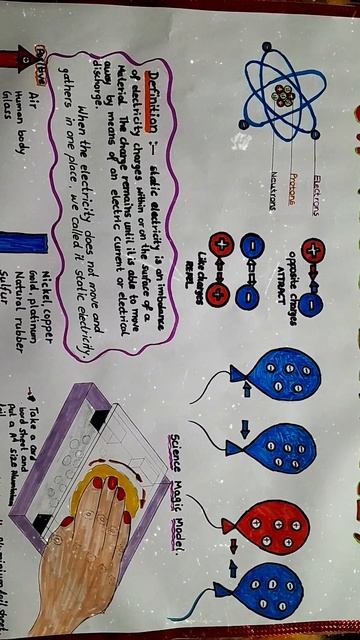 Electrons
Protons
Neutrons
opposite charges
ATTRACT
Like charges
REPEL
Definition :- Static electricity is an imbalance
of electricity charges within or on the surface of a
Material. The charge remains until it is able to move
away by means of an electric current or electrical
discharge.
When the electricity does not move and
gathers in one place, we called it static electricity.
Science Magic Model
Air
Human body
Glass
Nickel, copper
Gold, platinum
Natural rubber
Sulfur
→ Take a card
board sheet and
put a A4 size Aluminium